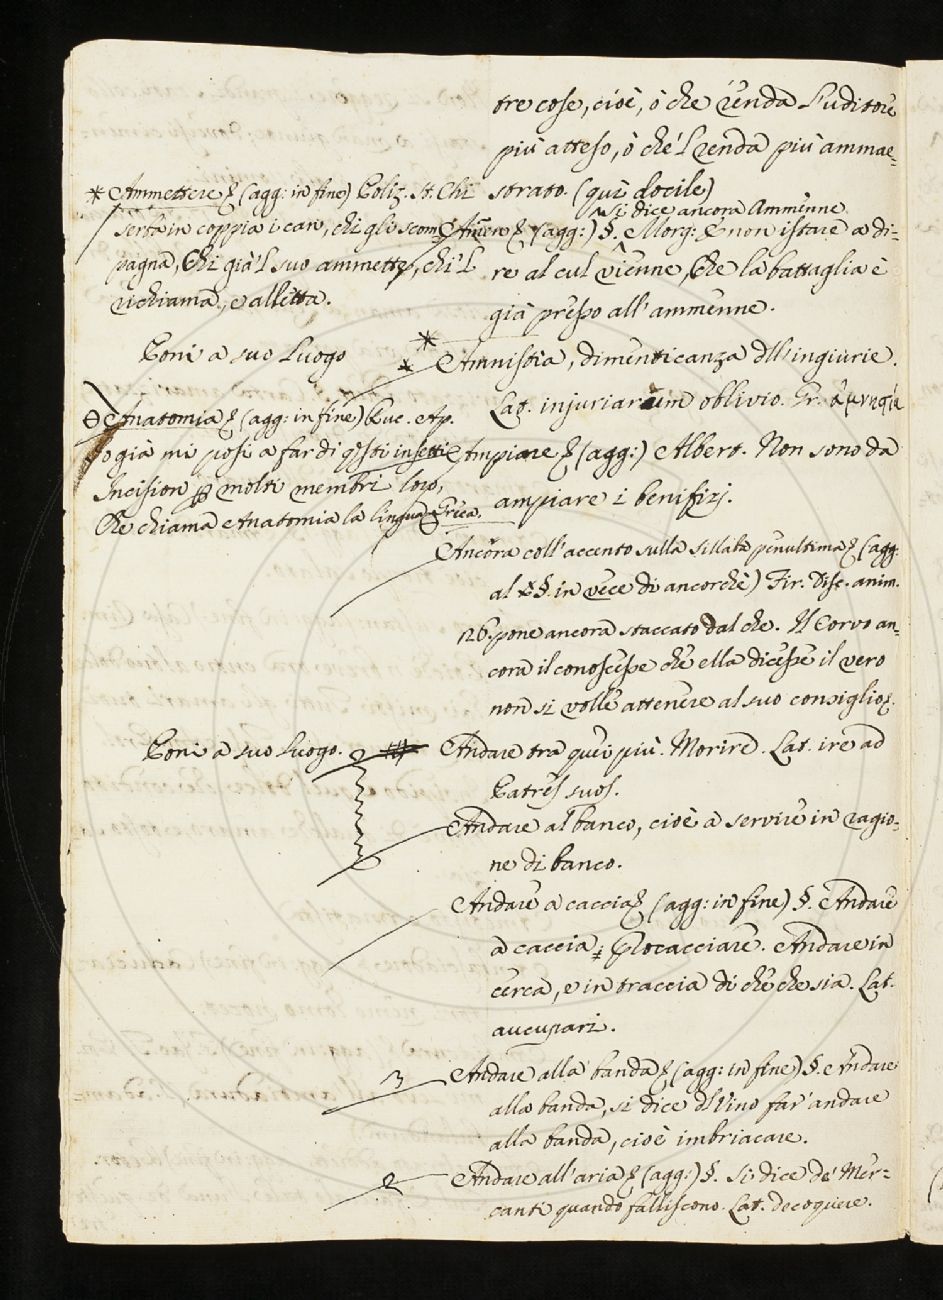 tre cose, cioè, ò che renda l'uditore
più atteso, ò che 'l renda più ammae=
strato. (quì docile)
si dice ancora Ammenne
(agg:) §. Morg: E non istare a di=
re al cul vienne, Che la battaglia è
già presso all'ammenne.
Amnistia, dimenticanza dll'ingiurie.
Lat. injuriarum oblivio. Gr.
Ampiare (agg:) Albert. Non sono da
ampiare i benifizj.
Ancora coll'accento sulla sillaba penultima (agg:
al §. in vece di ancorchè) Fir. Disc. anim.
126. pone ancora staccato dal che. Il Corvo an=
cora il conoscesse che ella dicesse il vero
non si volle attenere al suo consiglio.
Andare tra quei più. Morire. Lat. ire ad
Patres suos.
Andare al banco, cioè a servire in ragio=
ne di banco.
Andare a caccia (agg: in fine) §. Andare
a caccia; Procacciare. Andare in
cerca, e in traccia di che che sia. Lat.
aucupari.
3 Andare alla banda (agg: in fine) §. Andare
alla banda, si dice dll'ino far' andare
alla banda, cioè imbriacare.
2 Andare all'aria (agg:) §. Si dice de' Mer=
canti quando falliscono. Lat. decoquere.
* Ammettere (agg: in fine) Poliz. St. Chi
serba in coppia i can, chi gli scom=
pagna, Chi già 'l suo ammette, chi 'l
richiama, e alletta.
Poni a suo luogo
Anatomia (agg: in fine) Ruc. Ap.
Io già mi posi a far di qsti insetti
Incision p molti membri loro,
Che chiama Anatomia la lingua Greca.
Poni a suo luogo.